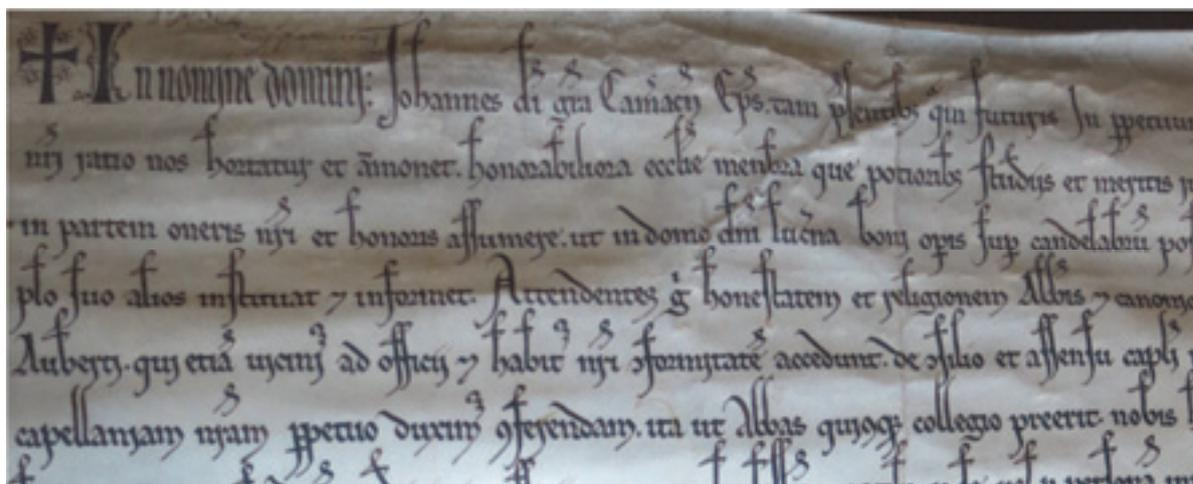 ✝ In nomine domini: Johannes di gra Camac Eps. tam psentibz qm futuris In ppetuum
nri ratio nos hortatur et amonet. honorabiliora ecclie menbra que potioribz studijs et meritis
in partem oneris nri et honoris assumere. ut in domo dni lucna boni opis sup candelabru
plo suo alios instituat ⁊ informet. Attendentes g honestatem et religionem Abbis ⁊
Auberti. qui etia uicini ad officij ⁊ habit nri ɔformitate accedunt. de ɔsilio et assensu capli
capellaniam nram ppetuo duxim ɔferendam. ita ut Abbas quoqz collegio preerit. nobis